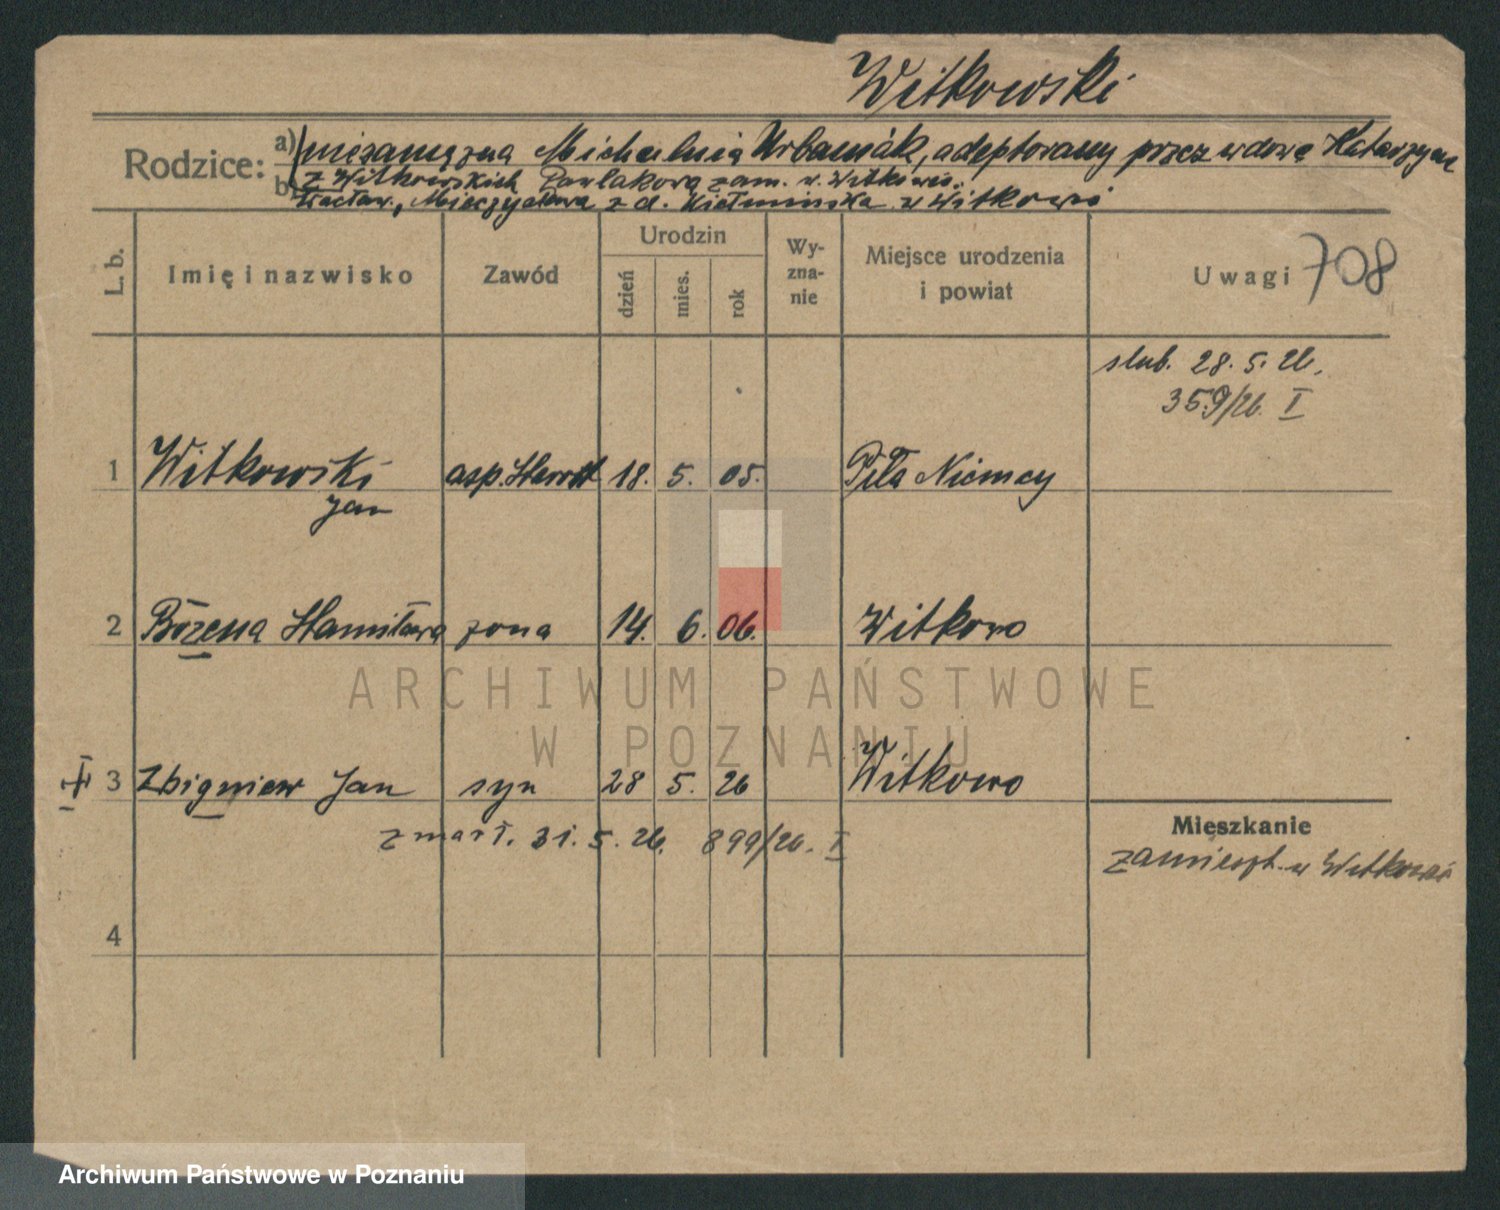 Witkowski
Rodzice: a) niezamężna Michalina Urbaniak, adoptowany przez wdowę Katarzynę
b) z Witkowskich Pawlakową zam. w Witkowie.
Wacław, Mieczysława z d. w Witkowie
L. b. Imię i nazwisko Zawód Urodzin dzień mies. rok Wy-zna-nie Miejsce urodzenia i powiat Uwagi 708
ślub. 28. 5. 26.
359/26. I
1 Witkowski asp. 18. 5. 05. Piła Niemcy
Jan
2 Bożena Stanisława żona 14. 6. 06. Witkowo
ARCHIWUM PAŃSTWOWE
W POZNANIU
3 Zbigniew Jan syn 28 5. 26 Witkowo
Mieszkanie
zmarł. 31. 5. 26. 899/26. I
zamieszk. w Witkowie
4
Archiwum Państwowe w Poznaniu